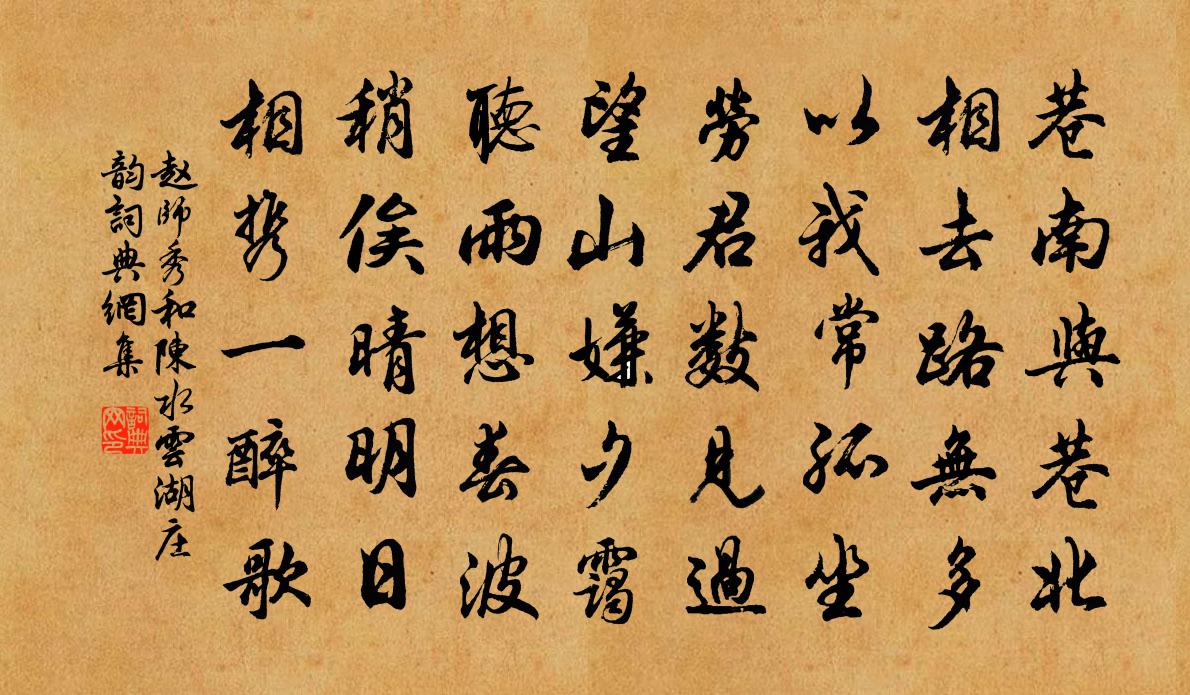 巷南與巷北
相去路無多
以我常孤坐
勞君數見過
望山嫌夕靄
聽雨想春波
稍俟晴明日
相携一醉歌
赵師秀和陳水雲湖庄
韵詞典網集